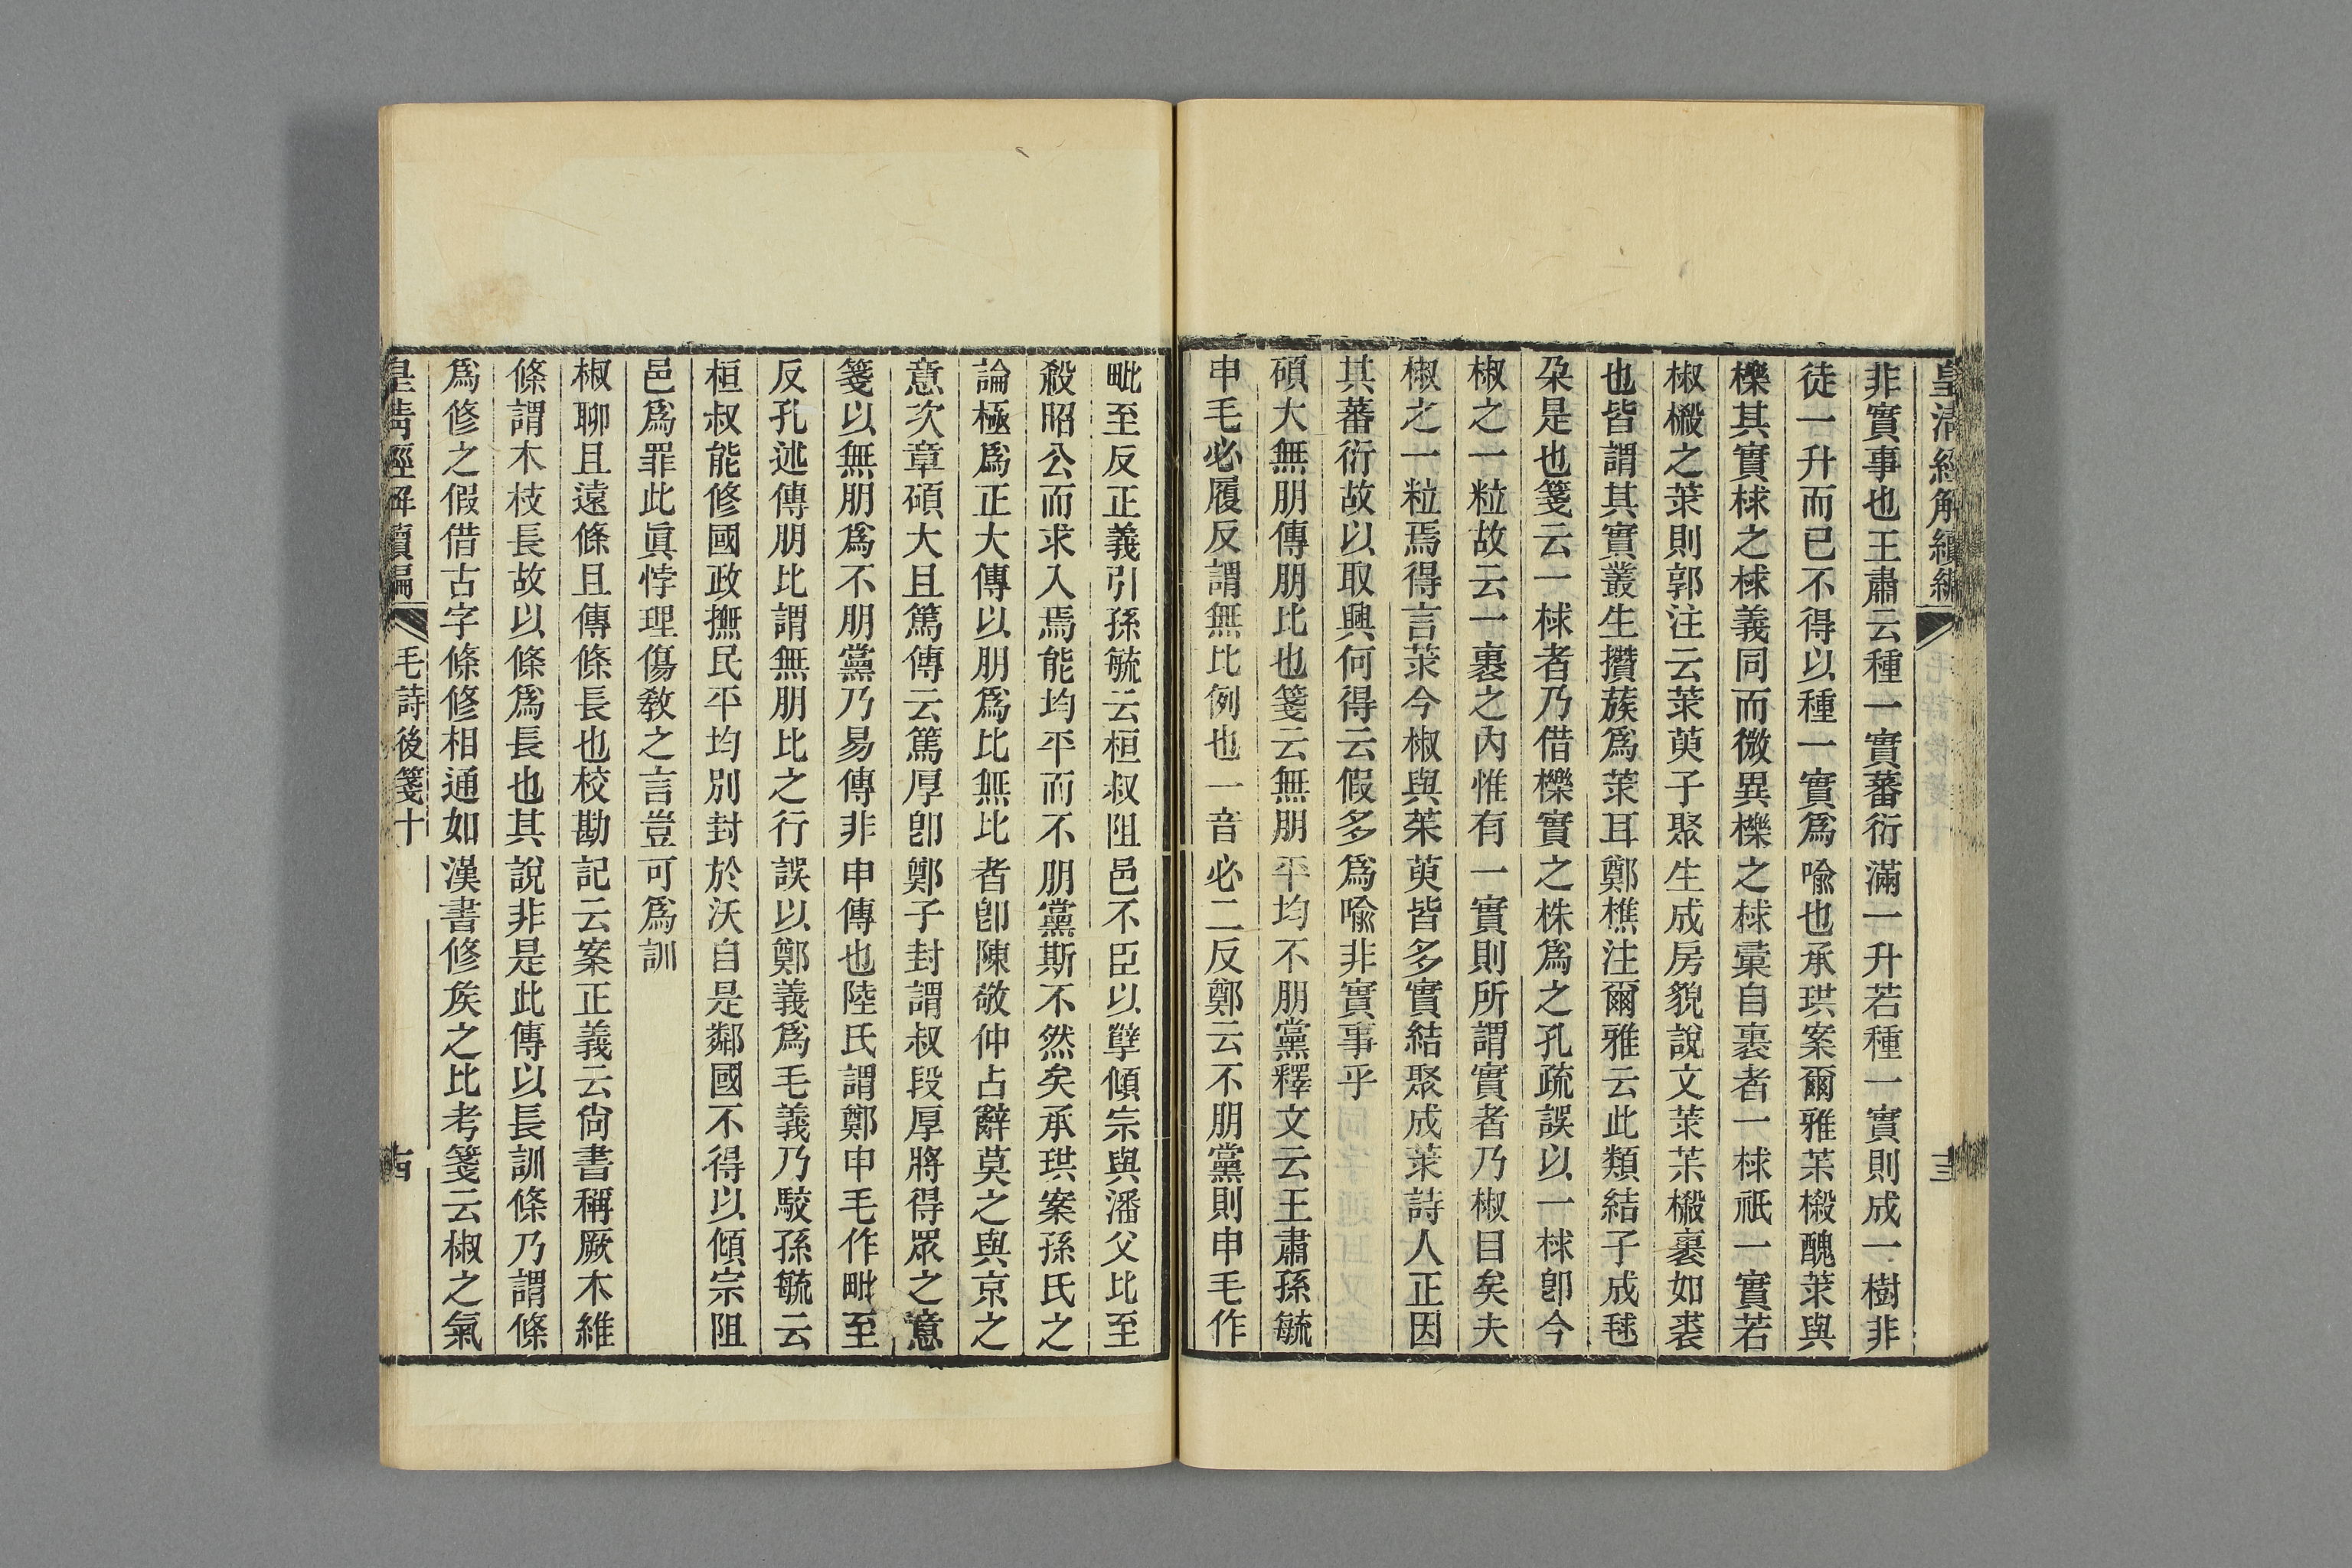 皇清經解續編
非實事也王肅云種一實蕃衍滿一升若種一實則成一樹非
徒一升而已不得以種一實爲喻也承珙案爾雅茮樧醜莍與
櫟其實梂之梂義同而微異櫟之梂彙自裹者一梂祇一實若
椒樧之莍則郭注云莍萸子聚生成房貌說文莍茮樧裏如裘
也皆謂其實叢生攢蔟爲莍耳鄭樵注爾雅云此類結子成毬
朶是也箋云一梂者乃借櫟實之株爲之孔疏誤以一梂卽今
椒之一粒故云一裹之內惟有一實則所謂實者乃椒目矣夫
椒之一粒焉得言莍今椒與茱萸皆多實結聚成莍詩人正因
其蕃衍故以取興何得云假多爲喻非實事乎
碩大無朋傳朋比也箋云無朋平均不朋黨釋文云王肅孫毓
申毛必履反謂無比例也一音必二反鄭云不朋黨則申毛作
毗至反正義引孫毓云桓叔阻邑不臣以孽傾宗與潘父比至
殺昭公而求入焉能均平而不朋黨斯不然矣承珙案孫氏之
論極爲正大傳以朋爲比無比者卽陳敬仲占辭莫之與京之
意次章碩大且篤傳云篤厚卽鄭子封謂叔段厚將得眾之意
箋以無朋爲不朋黨乃易傳非申傳也陸氏謂鄭申毛作毗至
反孔述傳朋比謂無朋比之行誤以鄭義爲毛義乃駮孫毓云
桓叔能修國政撫民平均別封於沃自是鄰國不得以傾宗阻
邑爲罪此眞悖理傷敎之言豈可爲訓
椒聊且遠條且傳條長也校勘記云案正義云尙書稱厥木維
條謂木枝長故以條爲長也其說非是此傳以長訓條乃謂條
爲修之假借古字條修相通如漢書修矦之比考箋云椒之氣
皇清經解續編
毛詩後箋十
古